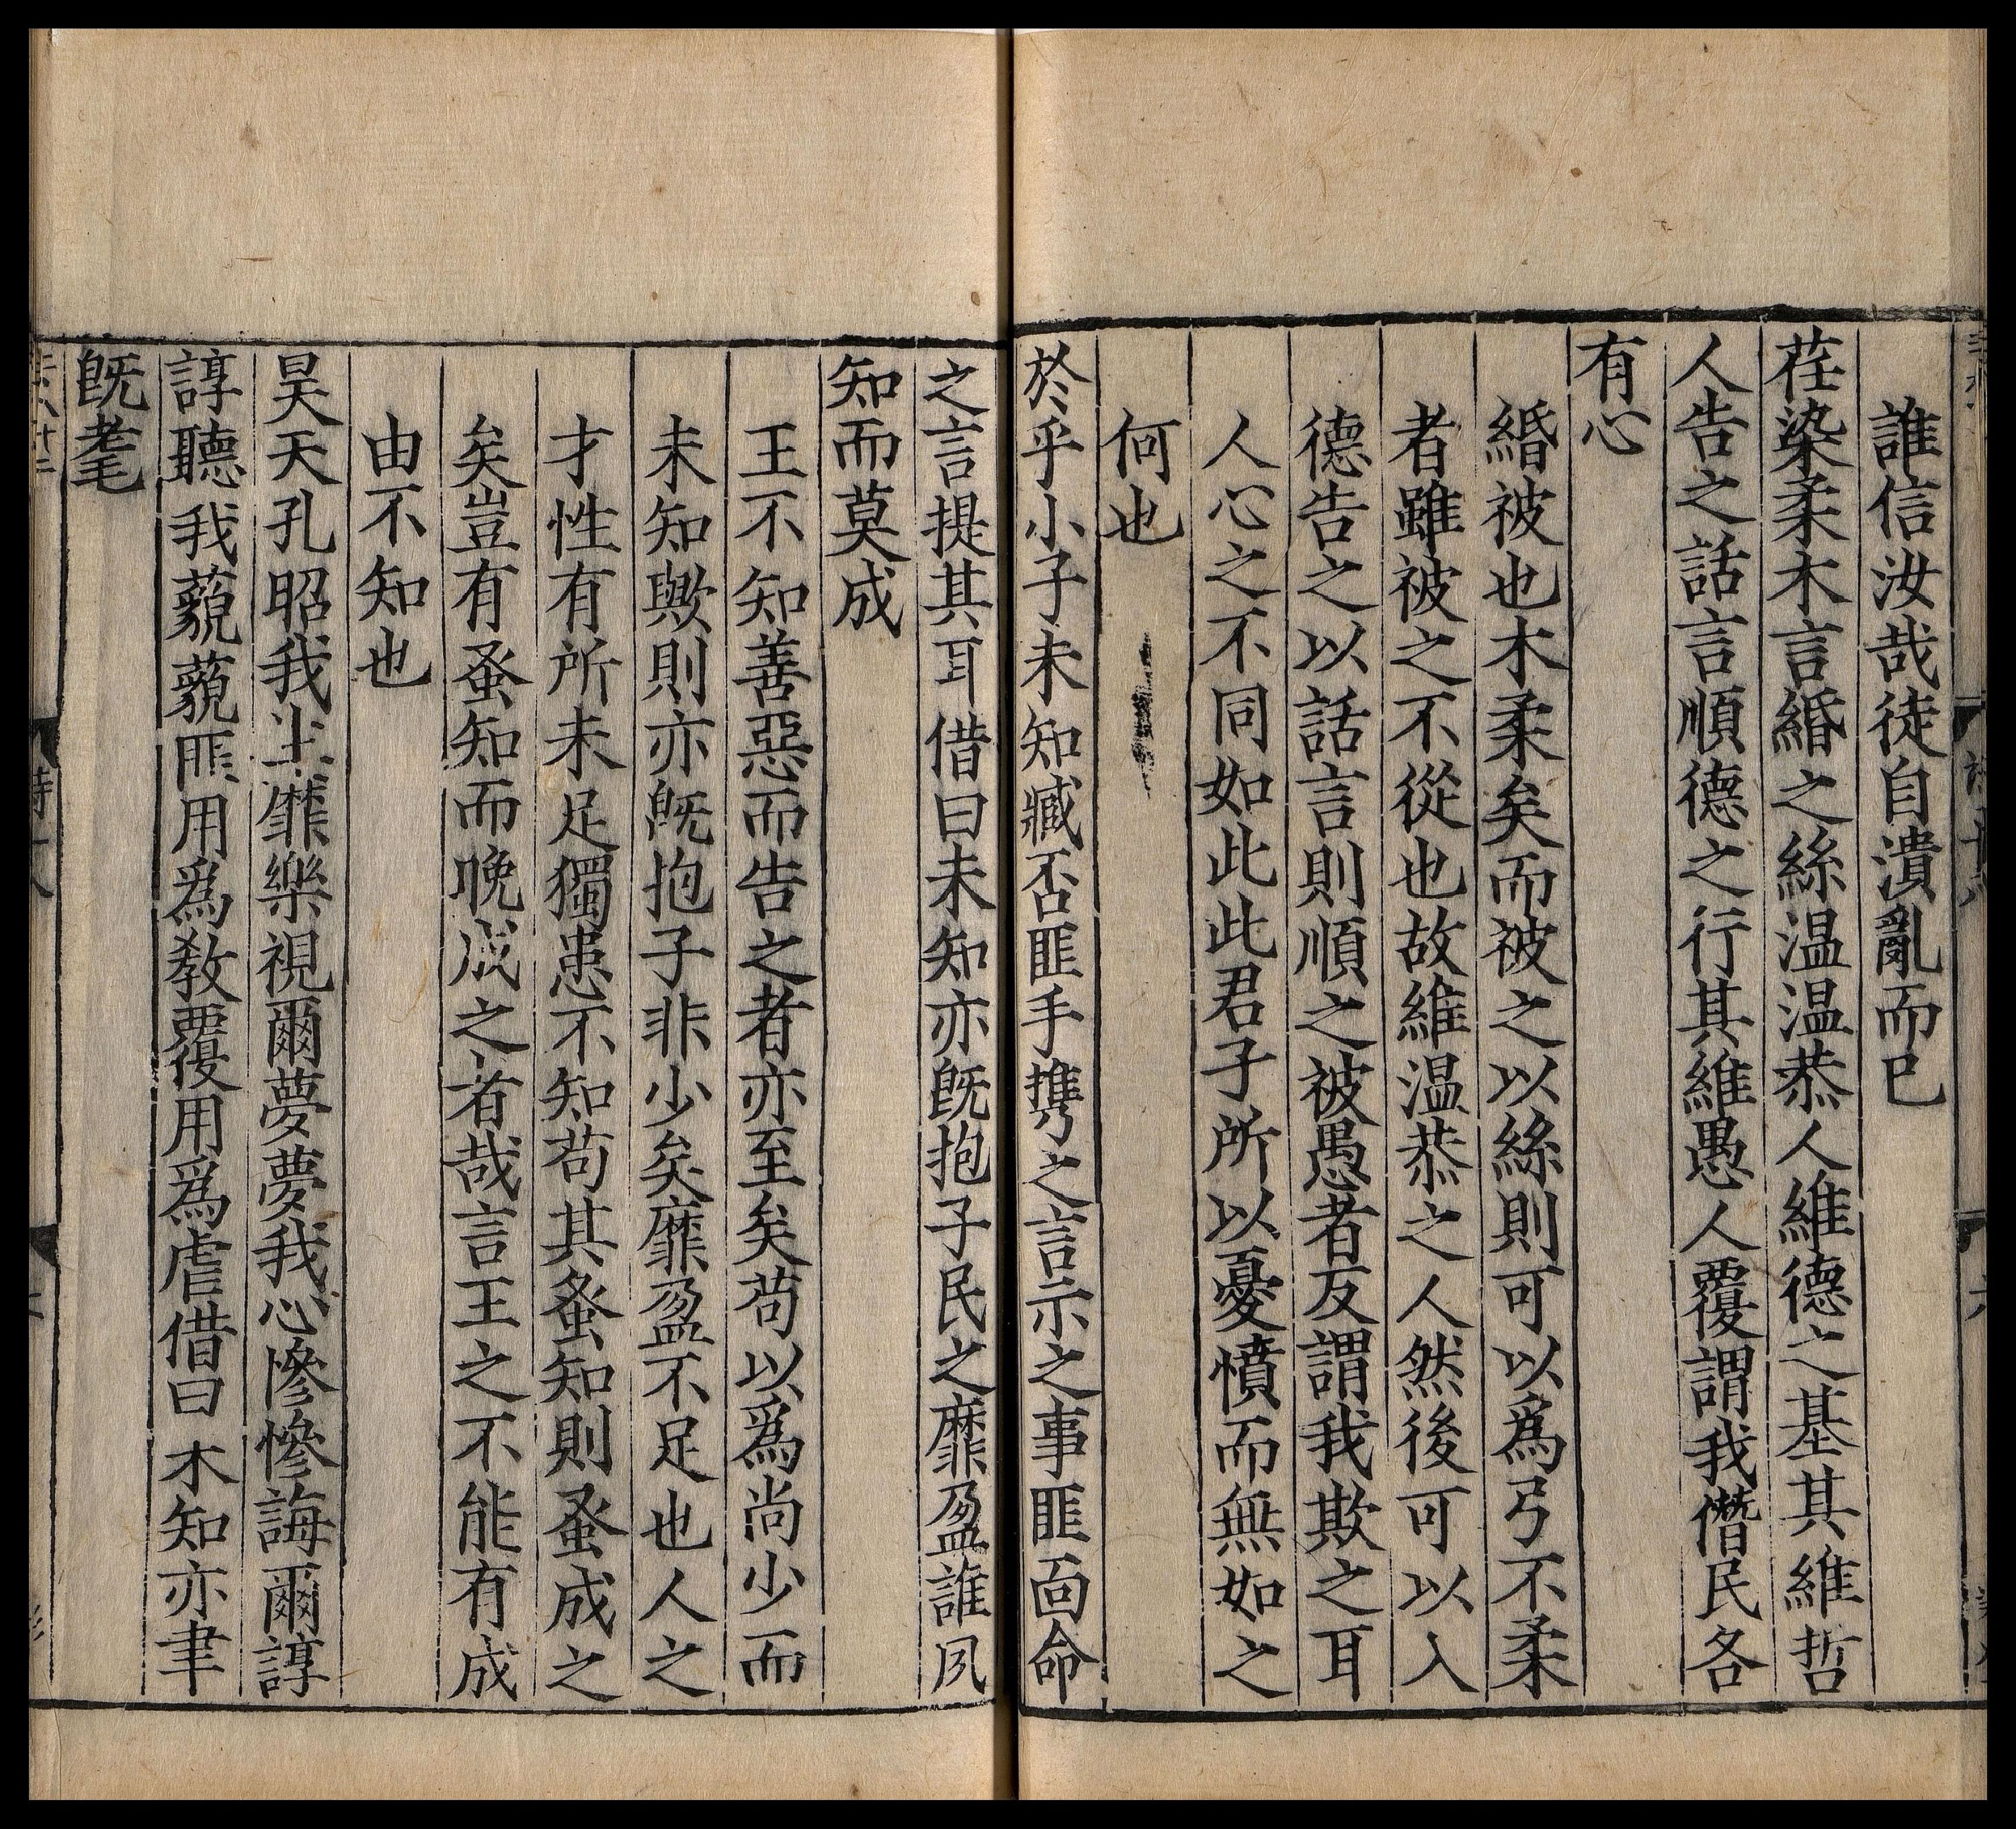 誰信汝哉徒自潰亂而已
荏染柔木言緡之絲温温恭人維德之基其維哲
人告之話言順德之行其維愚人覆謂我僭民各
有心
緡被也木柔矣而被之以絲則可以為弓不柔
者雖被之不從也故維温恭之人然後可以入
德告之以話言則順之被愚者反謂我欺之耳
人心之不同如此此君子所以憂憤而無如之
何也
於乎小子未知臧否匪手攜之言示之事匪面命
之言提其耳借曰未知亦旣抱子民之靡盈誰夙
知而莫成
王不知善惡而告之者亦至矣苟以爲尚少而
未知歟則亦旣抱子非少矣靡盈不足也人之
才性有所未足獨患不知苟其蚤知則蚤成之
矣豈有蚤知而晚成之者哉言王之不能有成
由不知也
昊天孔昭我生靡樂視爾夢夢我心慘慘誨爾諄
諄聽我藐藐匪用爲教覆用爲虐借曰未知亦聿
旣耄